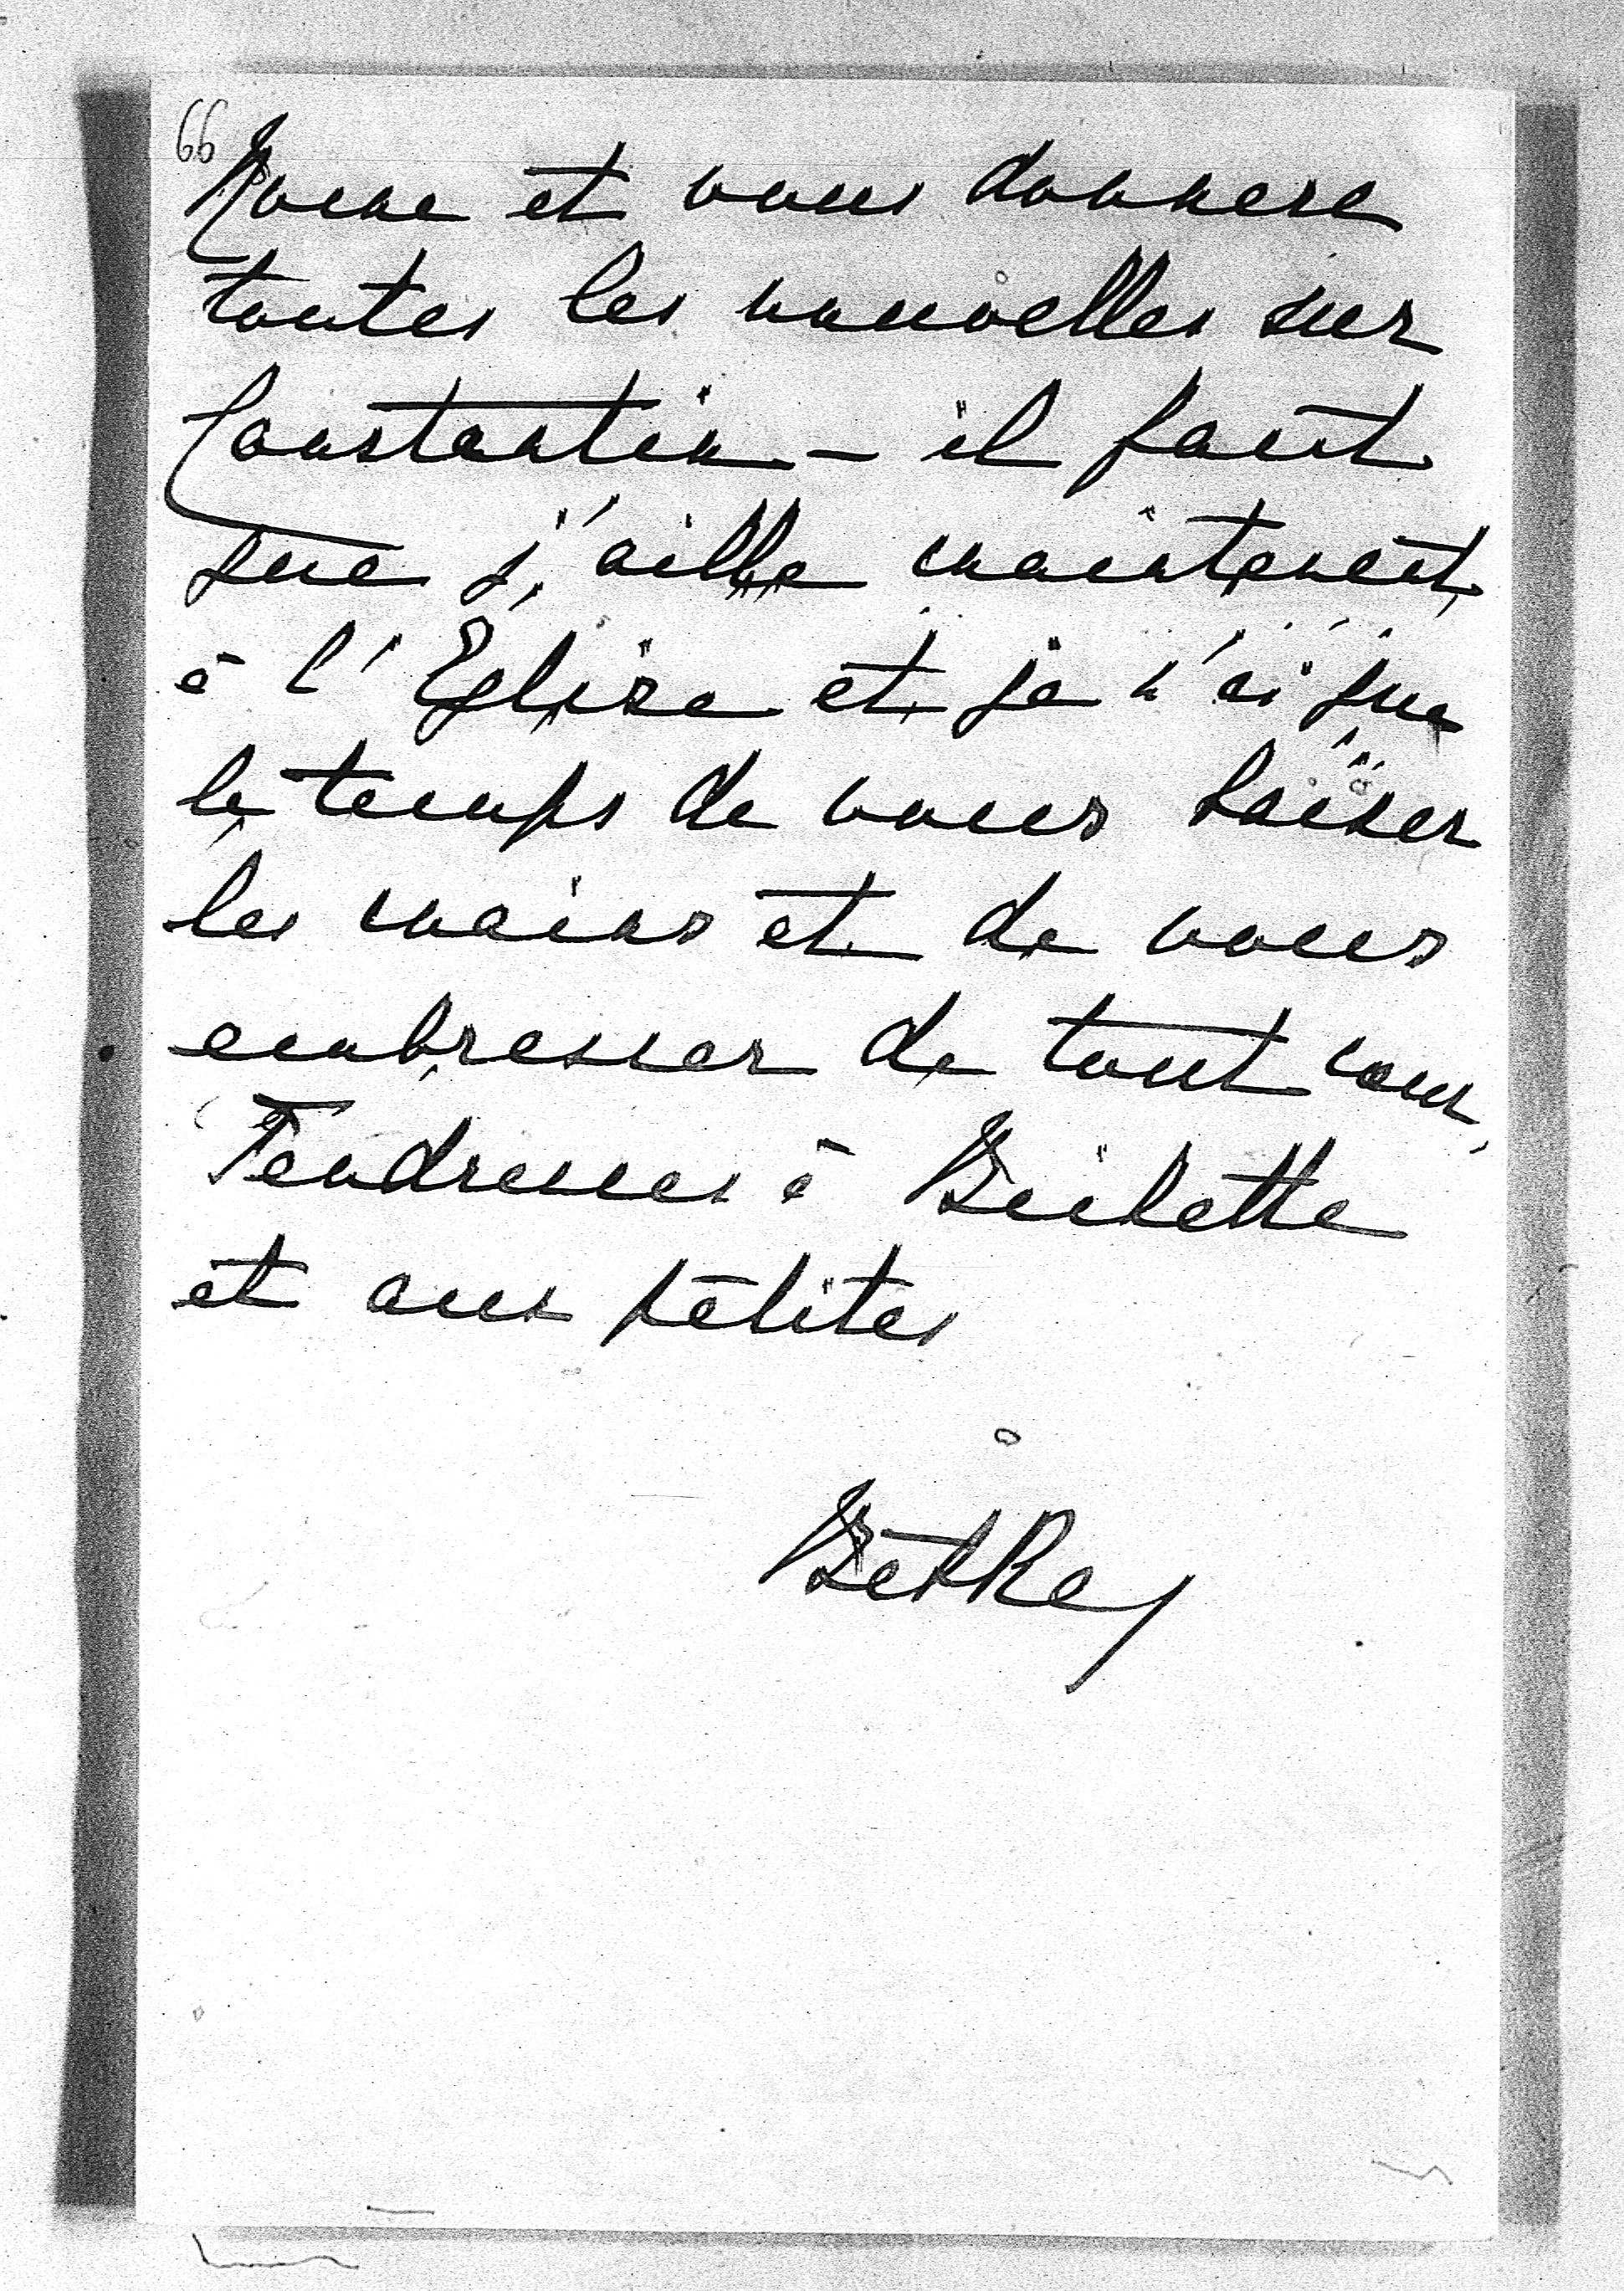 66
Rome et vous donnera
toutes les nouvelles sur
Constantin – il faut
que j'aille maintenant
à l'Eglise et je n'ai que
le temps de vous baiser
les mains et de vous
embrasser de tout cœur,
Tendresses à
et aux pétites